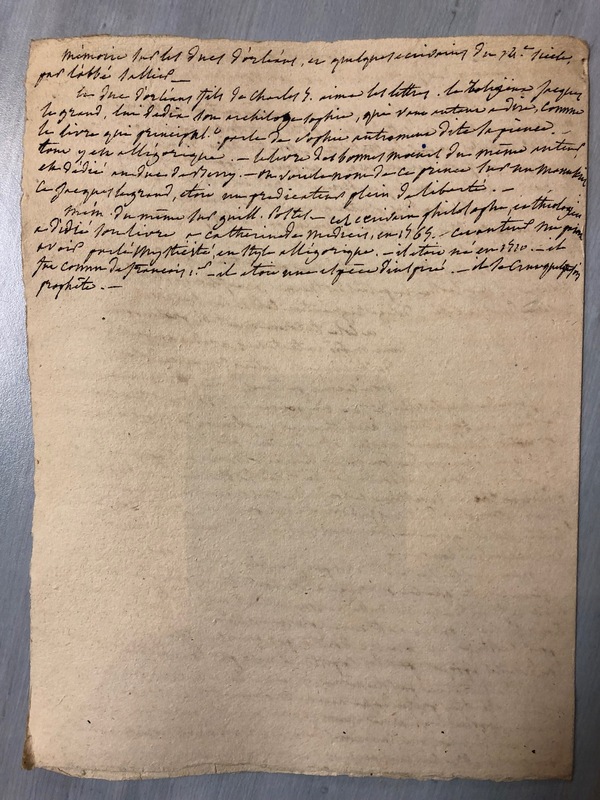 mémoire sur les ducs d'orléans, et quelques écrivains du 14.e siècle,
par l'abbé sallier —
le duc d'orléans fils de Charles 5. aima les lettres. le Religieux jacques
le grand, lui dédia son archiloge sophie, qui vaut autant a dire, comme
le livre qui principal.t parle de sophie autrement dite sapience. —
tout y est allégorique. — le livre des bonnes moeurs du même auteur
est dédié au duc de Berry. — on voit le nom de ce prince sur un manuscrit
ce jacques legrand, etoit un prédicateur plein de liberté. —
mém. du même sur guill. Postel — cet écrivain philosophe, et théologien
a dédié son livre a catherine de medicis, en 1569. — cet auteur
avoit par le mystique, en style allégorique. — il etoit né en 1510. — il
fut connu de françois 1.er — il etoit une espèce d'inspiré. — il se crut
prophète. —